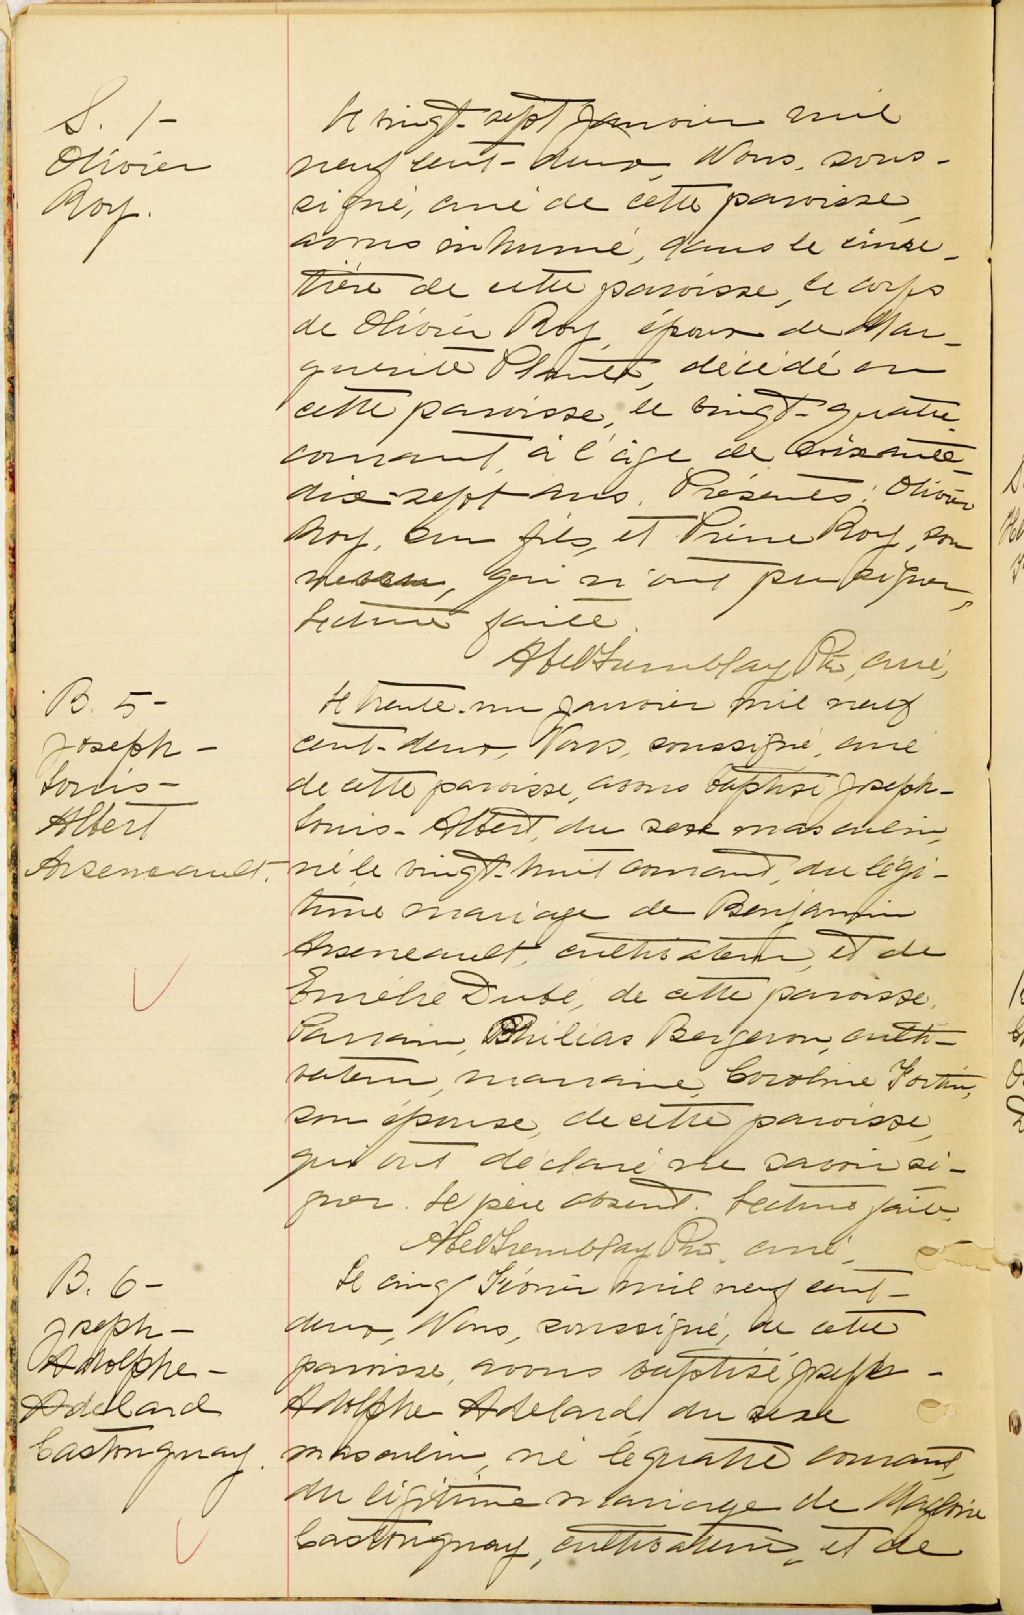 S. 1-
Olivier
Roy.
Le vingt-sept Janvier mil
neuf cent-deux, Nous, sous-
signé, curé de cette paroisse,
avons inhumé, dans le cime-
tière de cette paroisse, le corps
de Olivier Roy, époux de Mar-
guerite Plante, décédé en
cette paroisse, le vingt-quatre
courant, à l'âge de soixante-
dix-sept ans. Présents: Olivier
Roy, son fils, et Pierre Roy, son
neveu, qui n'ont pu signer,
Lecture faite.
Abel Tremblay Ptre, curé,
B. 5-
Joseph-
Louis-
Albert
Arseneault.
Le trente-un Janvier mil neuf
cent-deux, Nous, soussigné, curé
de cette paroisse, avons baptisé Joseph-
Louis-Albert, du sexe masculin,
né le vingt-huit courant, du légi-
time mariage de Benjamin
Arseneault, cultivateur, et de
Emélie Dubé, de cette paroisse.
Parrain, Philias Bergeron, culti-
vateur, marraine, Caroline Fortin,
son épouse, de cette paroisse,
qui ont déclaré ne savoir si-
gner. Le père absent. Lecture faite.
Abel Tremblay Ptre, curé,
B. 6-
Joseph-
Adolphe-
Adelard
Castonguay.
Le cinq Février mil neuf cent-
deux, Nous, soussigné, de cette
paroisse, avons baptisé Joseph-
Adolphe Adelard, du sexe
masculin, né le quatre courant,
du légitime mariage de Magloire
Castonguay, cultivateur, et de